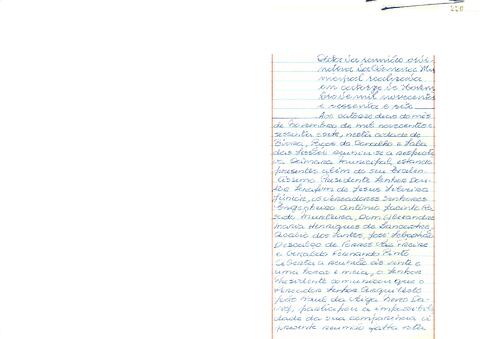 Acta da reunião ordi
nária da Câmara Mu
nicipal realizada
em catorze de Novem
bro de mil novecentos
e sessenta e sete
Aos catorze dias do mês
de Novembro de mil novecentos e
sessenta e sete, nesta cidade de
Paços do Concelho e Sala
das Sessões reuniu-se a respecti
va Câmara Municipal, estando
presentes além do seu
Presidente Senhor Dou
tor Serafim de Jesus Silveira
Júnior, os Vereadores Senhores
Engenheiro António Jacinto
Dom Alexandre
Maria Henriques de Lancastre,
dos Santos, José Sebastião
de Torres Vaz Freire
e Geraldo Fernando Pinto
Aberta a reunião às vinte e
uma horas e meia, o Senhor
Presidente comunicou que o
Vereador Senhor Arquitecto
João Raul da Veiga
participou a impossibili
dade da sua comparência à
presente reunião